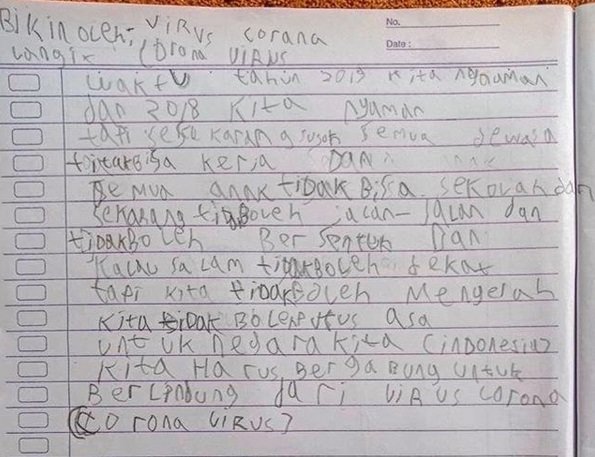 BIKIN OLEH: VIRUS corona
No.
Langit (corona VIRUS
Date:
waktu tahun 2019 kita nyaman
dan 2018 KITA nyaman
tapi sekarang susah semua dewasa
tidak Bisa kerja DAN
semua anak tidak Bisa sekolah dan
sekarang tidak boleh jalan-jalan dan
tidak Boleh Bersentuk Dan
Kalau salam tidak Boleh dekat
tapi kita tidak Boleh Mengerah
kita tidak Boleh putus asa
untuk negara kita (indonesia)
kita Harus Bergabung untuk
Berlindung dari VIRUS corona
(corona VIRUS)